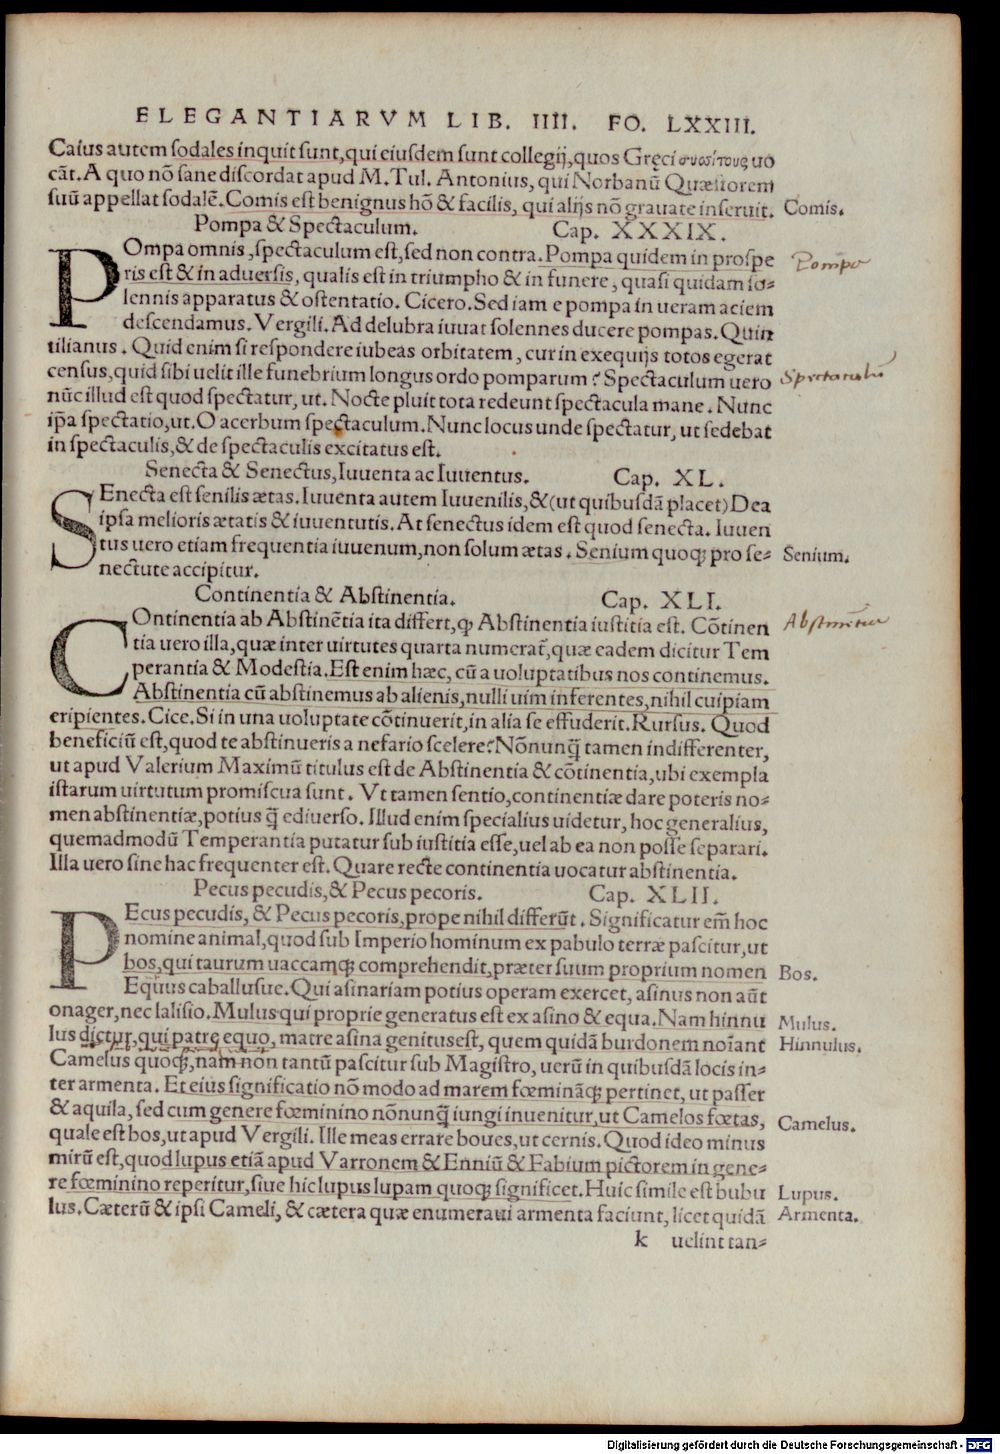 ELEGANTIARVM LIB. IIII. FO. LXXIII.
Caius autem sodales inquit sunt, qui eiusdem sunt collegij, quos Gręci uo
cāt. A quo nō sane discordat apud M. Tul. Antonius, qui Norbanū Quæstorem
suū appellat sodalē. Comis est benignus hō & facilis, qui alijs nō grauate inseruit. Comis.
Pompa & Spectaculum. Cap. XXXIX.
POmpa omnis, spectaculum est, sed non contra. Pompa quidem in prospe Pompa
ris est & in aduersis, qualis est in triumpho & in funere, quasi quidam so-
lennis apparatus & ostentatio. Cicero. Sed iam e pompa in ueram aciem
descendamus. Vergili. Ad delubra iuuat solennes ducere pompas. Quin
tilianus. Quid enim si respondere iubeas orbitatem, cur in exequijs totos egerat
census, quid sibi uelit ille funebrium longus ordo pomparum? Spectaculum uero Spectaculū
nūc illud est quod spectatur, ut. Nocte pluit tota redeunt spectacula mane. Nunc
ip̄a spectatio, ut. O acerbum spectaculum. Nunc locus unde spectatur, ut sedebat
in spectaculis, & de spectaculis excitatus est.
Senecta & Senectus, Iuuenta ac Iuuentus. Cap. XL.
SEnecta est senilis ætas. Iuuenta autem Iuuenilis, & (ut quibusdā placet) Dea
ipsa melioris ætatis & iuuentutis. At senectus idem est quod senecta. Iuuen
tus uero etiam frequentia iuuenum, non solum ætas. Senium quoqꝫ pro se- Senium.
nectute accipitur.
Continentia & Abstinentia. Cap. XLI.
COntinentia ab Abstinētia ita differt, ꝙ Abstinentia iustitia est. Cōtinen Abstinētia
tia uero illa, quæ inter uirtutes quarta numerat̃, quæ eadem dicitur Tem
perantia & Modestia. Est enim hæc, cū a uoluptatibus nos continemus.
Abstinentia cū abstinemus ab alienis, nulli uim inferentes, nihil cuipiam
eripientes. Cice. Si in una uoluptate cōtinuerit, in alia se effuderit. Rursus. Quod
beneficiū est, quod te abstinueris a nefario scelere? Nōnunq̄ tamen indifferenter,
ut apud Valerium Maximū titulus est de Abstinentia & cōtinentia, ubi exempla
istarum uirtutum promiscua sunt. Vt tamen sentio, continentiæ dare poteris no-
men abstinentiæ, potius q̄ ediuerso. Illud enim specialius uidetur, hoc generalius,
quemadmodū Temperantia putatur sub iustitia esse, uel ab ea non posse separari.
Illa uero sine hac frequenter est. Quare recte continentia uocatur abstinentia.
Pecus pecudis, & Pecus pecoris. Cap. XLII.
PEcus pecudis, & Pecus pecoris, prope nihil differūt. Significatur em̄ hoc
nomine animal, quod sub Imperio hominum ex pabulo terræ pascitur, ut
bos, qui taurum uaccamqꝫ comprehendit, præter suum proprium nomen Bos.
Equus caballusue. Qui asinariam potius operam exercet, asinus non aūt
onager, nec lalisio. Mulus qui proprie generatus est ex asino & equa. Nam hinnu Mulus.
lus dictur, qui patre equo, matre asina genitus est, quem quidā burdonem noīant Hinnulus.
Camelus quoqꝫ, nam non tantū pascitur sub Magistro, uerū in quibusdā locis in-
ter armenta. Et eius significatio nō modo ad marem fœmināqꝫ pertinet, ut passer
& aquila, sed cum genere fœminino nōnunq̄ iungi inuenitur, ut Camelos fœtas, Camelus.
quale est bos, ut apud Vergili. Ille meas errare boues, ut cernis. Quod ideo minus
mirū est, quod lupus etiā apud Varronem & Enniū & Fabium pictorem in gene-
re fœminino reperitur, siue hic lupus lupam quoqꝫ significet. Huic simile est bubu Lupus.
lus. Cæterū & ipsi Cameli, & cætera quæ enumeraui armenta faciunt, licet quidā Armenta.
k uelint tan-
Digitalisierung gefördert durch die Deutsche Forschungsgemeinschaft - DFG